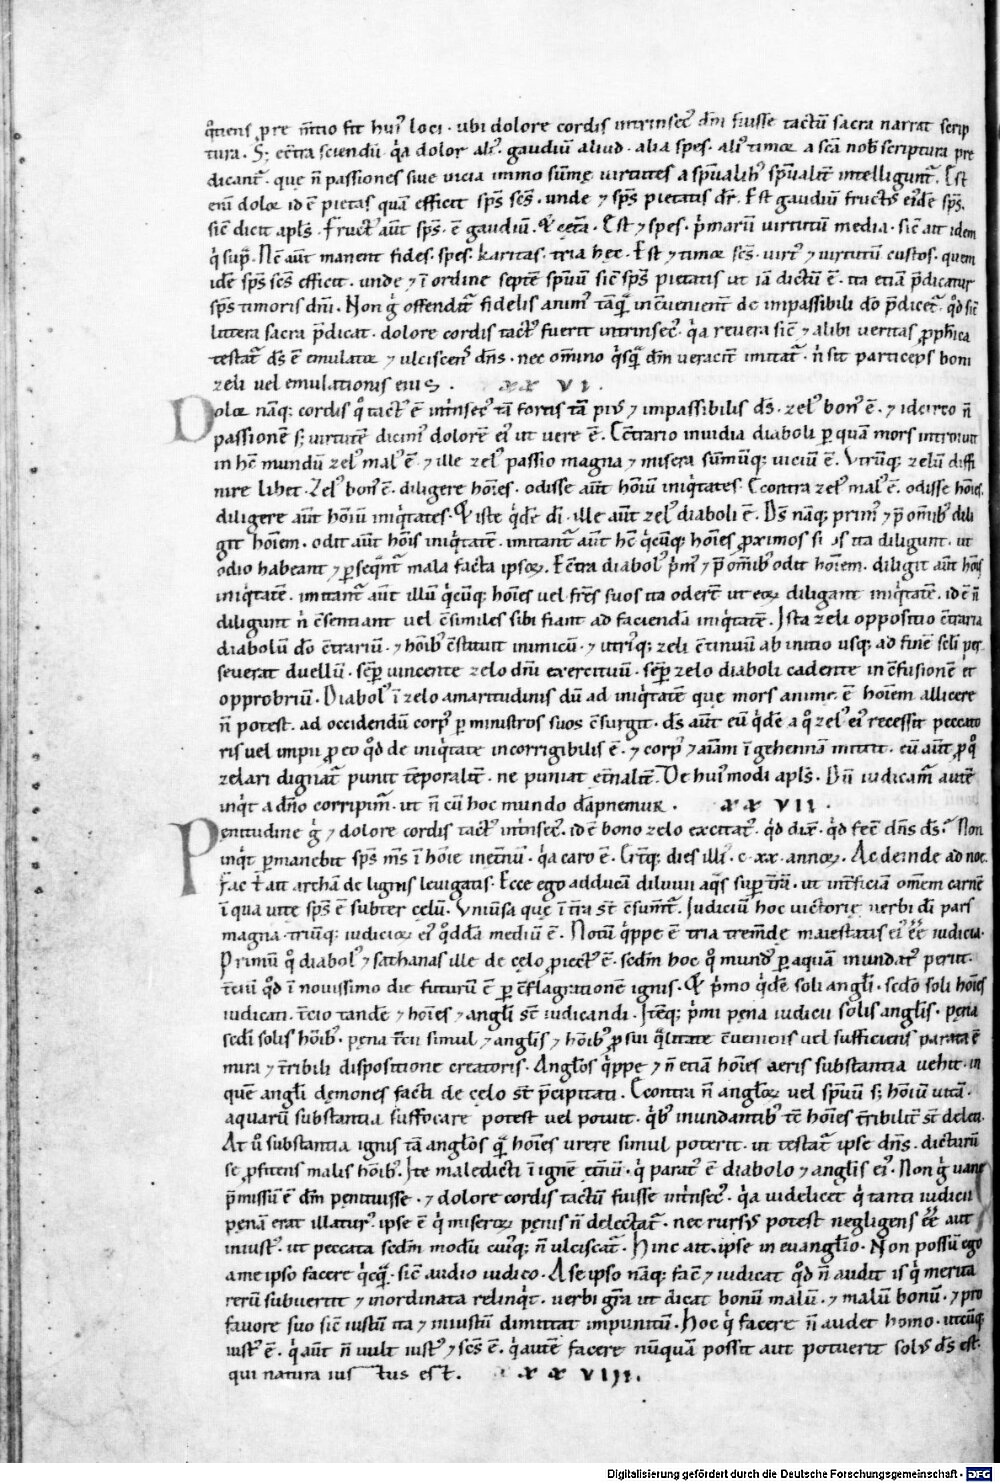 q̊tiens pre m̅tio fit hui᷒ loci · ubi dolore cordis intrinsec᷒ dm̅ fuisse tactu̅ sacra narrat scrip
tura · S; ec̅tra sciendu̅ · q̇a dolor ali᷒ · gaudiu̅ aliud · alia spes · ali᷒ timor a sc̅a nob̅ scriptura pre
dicant᷑ · que n̅ passiones siue uicia immo su̅me̜ uirtutes a sp̅ualib᷒ sp̅ualit̅ intelligunt᷑ · Est
eni̅ dolor id e̅ pietas qua̅ efficit sp̅s sc̅s · unde ⁊ sp̅s pietatis dr̅ · Est gaudiu̅ fruct᷒ eide̅ sp̅s ·
sic̅ dicit apl̅s · Fruct᷒ aut̅ sp̅s · e̅ gaudiu̅ · & cet̅a · Est ⁊ spes · ṗmaru̅ uirtutu̅ media · sic̅ ait idem
q̇ sup᷑ · Nc̅ aut̅ manent fides · spes · karitas · tria hec · Est ⁊ timor sc̅s · uirt᷑ ⁊ uirtutu̅ custos · quem
ide̅ sp̅s sc̅s efficit · unde ⁊ i̅ ordine septe̅ sp̅uu̅ sic̅ sp̅s pietatis ut ia̅ dictu̅ e̅ · ita etia̅ p̅dicatur
sp̅s timoris dn̅i · Non g̊ offendat᷑ fidelis anim᷒ ta̅q̅ inc̅uenient̅ de impassibili do̅ p̅dicet᷑ · qd̅ sic̅
littera sacra p̅dicat · dolore cordis tact᷒ fuerit intrinsec᷒ · q̇a reuera sic̅ ⁊ alibi ueritas p̱ph̅ica
testat᷑ ds̅ e̅ emulator ⁊ ulciscens̅ dn̅s · nec om̅ino q̇sq̅ dm̅ ueracit̅ imitat᷑ · n̊ sit particeps boni
zeli uel emulationis eius · xx vi ·
Dolor na̅q; cordis q̊ tact᷒ e̅ int̅insec᷒ ta̅ fortis ta̅ pi᷒ ⁊ impassibilis ds̅ · zel᷒ bon᷒ e̅ · ⁊ idcirco n̅
passione̅ s; uirtute̅ dicim᷒ dolore̅ ei᷒ ut uere e̅ · Ec̅trario inuidia diaboli p̱ quam mors introiuit
in hc̅ mundu̅ zel᷒ mal᷒ e̅ · ⁊ ille zel᷒ passio magna ⁊ misera su̅mu̅q; uiciu̅ e̅ · Vtru̅q; zelu̅ diffi
nire libet · Zel᷒ bon᷒ e̅ · diligere ho̅ies · odisse aut̅ ho̅iu̅ iniq̇tates · Econtra zel᷒ mal᷒ e̅ · odisse ho̅ies ·
diligere aut̅ ho̅iu̅ iniq̇tates · & iste q̇de̅ di̅ · ille aut̅ zel᷒ diaboli e̅ · Ds̅ na̅q; prim᷒ ⁊ p̅ om̅ib᷒ dili
git ho̅iem · odit aut̅ ho̅is iniq̇tate̅ · imitant᷑ aut̅ hc̅ q̇cu̅q; ho̅ies p̱ximos suos ita diligunt · ut
odio habeant ⁊ p̱seq̅nt᷑ mala facta ipsoꝝ · Ec̅tra diabol᷒ ṗm᷒ ⁊ p̅ om̅ib᷒ odit ho̅iem · diligit aut̅ ho̅is
iniq̇tate̅ · imitant᷑ aut̅ illu̅ q̇cu̅q; ho̅ies uel fr̅es suos ita oder̅t ut eoꝝ diligant iniq̇tate̅ · id e̅ n̅
diligunt n̊ c̅sentiant uel c̅similes sibi fiant ad facienda̅ iniq̇tate̅ · Ista zeli oppositio c̅traria
diabolu̅ do̅ c̅trariu̅ · ⁊ ho̅ib᷒ c̅stituit inimicu̅ · ⁊ utri᷒q; zeli c̅tinuu̅ ab initio usq; ad fine̅ sc̅li per
seuerat duellu̅ · semp̱ uincente zelo dn̅i exercituu̅ · semp̱ zelo diaboli cadente in c̅fusione̅ et
opprobriu̅ · Diabol᷒ i̅ zelo amaritudinis du̅ ad iniq̇tate̅ que mors anime̜ e̅ ho̅iem allicere
n̅ potest · ad occidendu̅ corp᷒ p̱ ministros suos c̅surgit · ds̅ aut̅ eu̅ q̇de̅ a q̊ zel᷒ ei᷒ recessit peccato
ris uel impii p̱ eo qd̅ de iniq̇tate incorrigibilis e̅ · ⁊ corp᷒ ⁊ aia̅m i̅ gehenna̅ mittit · eu̅ aut̅ p̱ q̊
zelari dignat᷑ punit te̅poralit̅ · ne puniat et̅nalit̅ · De hui᷒modi apl̅s · Du̅ iudicam᷑ aute̅
inq̇t a dn̅o corripim᷑ · ut n̅ cu̅ hoc mundo da̅pnemur · xx vii ·
Penitudine g̊ ⁊ dolore cordis tact᷒ int̅insec᷒ · id e̅ bono zelo excitat᷒ · qd̅ dix̅ · qd̅ fec̅ dn̅s ds̅ · Non
inq̇t p̱manebit sp̅s m̅s i̅ ho̅ie inet̅nu̅ · q̇a caro e̅ · Er̅tq; dies illi᷒ · c · xx · annoꝝ · Ac deinde ad noe ·
Fac t̅ ait archa̅ de lignis leuigatis · Ecce ego adduca̅ diluuii aq̅s sup̱ t̅ra̅ · ut int̅ficia̅ omem carne̅
i̅ qua uite̜ sp̅s e̅ subter ce̜lu̅ · Vniu̅sa que i̅ t̅ra st̅ c̅sum̅t᷑ · Iudiciu̅ hoc uictorie̜ uerbi di̅ pars
magna · triu̅q; iudicioꝝ ei᷒ qd̅da̅ mediu̅ e̅ · Notu̅ q̇ppe e̅ tria trem̅de̜ maiestatis ei᷒ ee̅ iudicia ·
Primu̅ q̊ diabol᷒ ⁊ sathanas ille de ce̜lo p̱iect᷒ e̅ · secdm̅ hoc q̊ mund᷒ p̱ aquam inundat᷒ periit ·
t̅ciu̅ qd̅ i̅ nouissimo die futuru̅ e̅ p̱ c̅flagratione̅ ignis · & ṗmo q̇de̅ soli angl̅i · sedo̅ soli ho̅ies
iudicati · t̅cio tande̅ ⁊ ho̅ies ⁊ angl̅i st̅ iudicandi · Ite̅q; ṗmi pe̜na iudicii solis angl̅is · pe̜na
sedi̅ solis ho̅ib᷒ · pe̜na t̅cii simul ⁊ angl̅is ⁊ ho̅ib᷒ p̱ sui q̅litate c̅ueniens uel sufficiens parata e̅
mira ⁊ t̅ribili dispositione creatoris · Angl̅os q̇ppe ⁊ n̅ etia̅ ho̅ies aeris substantia uehit · in
que̅ angl̅i demones facti de celo st̅ p̅cipitati · Econtra n̅ angl̅oꝝ uel sp̅uu̅ s; ho̅iu̅ uita̅ ·
aquaru̅ substantia suffocare potest uel potuit · q̇b᷒ inundantib᷒ tc̅ ho̅ies t̅ribilit̅ st̅ deleti ·
At u̅ substantia ignis ta̅ angl̅os q̅ ho̅ies urere simul poterit · ut testat᷑ ipse dn̅s · dicturu̅
se p̱fitens malis ho̅ib᷒ · Ite maledicti i̅ igne̅ et̅nu̅ · q̇ parat᷒ e̅ diabolo ⁊ angl̅is ei᷒ · Non g̊ uane
p̅missu̅ e̅ dm̅ penituisse · ⁊ dolore cordis tactu̅ fuisse int̅insec᷒ · q̇a uidelicet q̇ tanti iudicii
pe̜na̅ erat illatur᷒ ipse e̅ q̇ miseroꝝ pe̜nis n̅ delectat᷑ · nec rurs᷒ potest negligens ee̅ aut
iniust᷒ · ut peccata secdm̅ modu̅ cui᷒q; n̅ ulciscat᷑ · Hinc ait ipse in euangl̅io · Non possu̅ ego
a me ipso facere q̇cq̅ · sic̅ audio iudico · A se ipso na̅q; fac̅ ⁊ iudicat qd̅ n̅ audit is q̇ merita
reru̅ subuertit ⁊ inordinata relinq̇t · uerbi gr̅a ut dicat bonu̅ malu̅ · ⁊ malu̅ bonu̅ · ⁊ pro
fauore suo sic̅ iustu̅ ita ⁊ iniustu̅ dimittat impunitu̅ · Hoc q̇ facere n̅ audet homo · utcu̅q;
iust᷒ e̅ · q̇ aut̅ n̅ uult iust᷒ ⁊ sc̅s e̅ · q̇ aute̅ facere nu̅qua̅ possit aut potuerit sol᷒ ds̅ est ·
qui natura ius tus est · xx viii ·
Digitalisierung gefördert durch die Deutsche Forschungsgemeinschaft - DFG